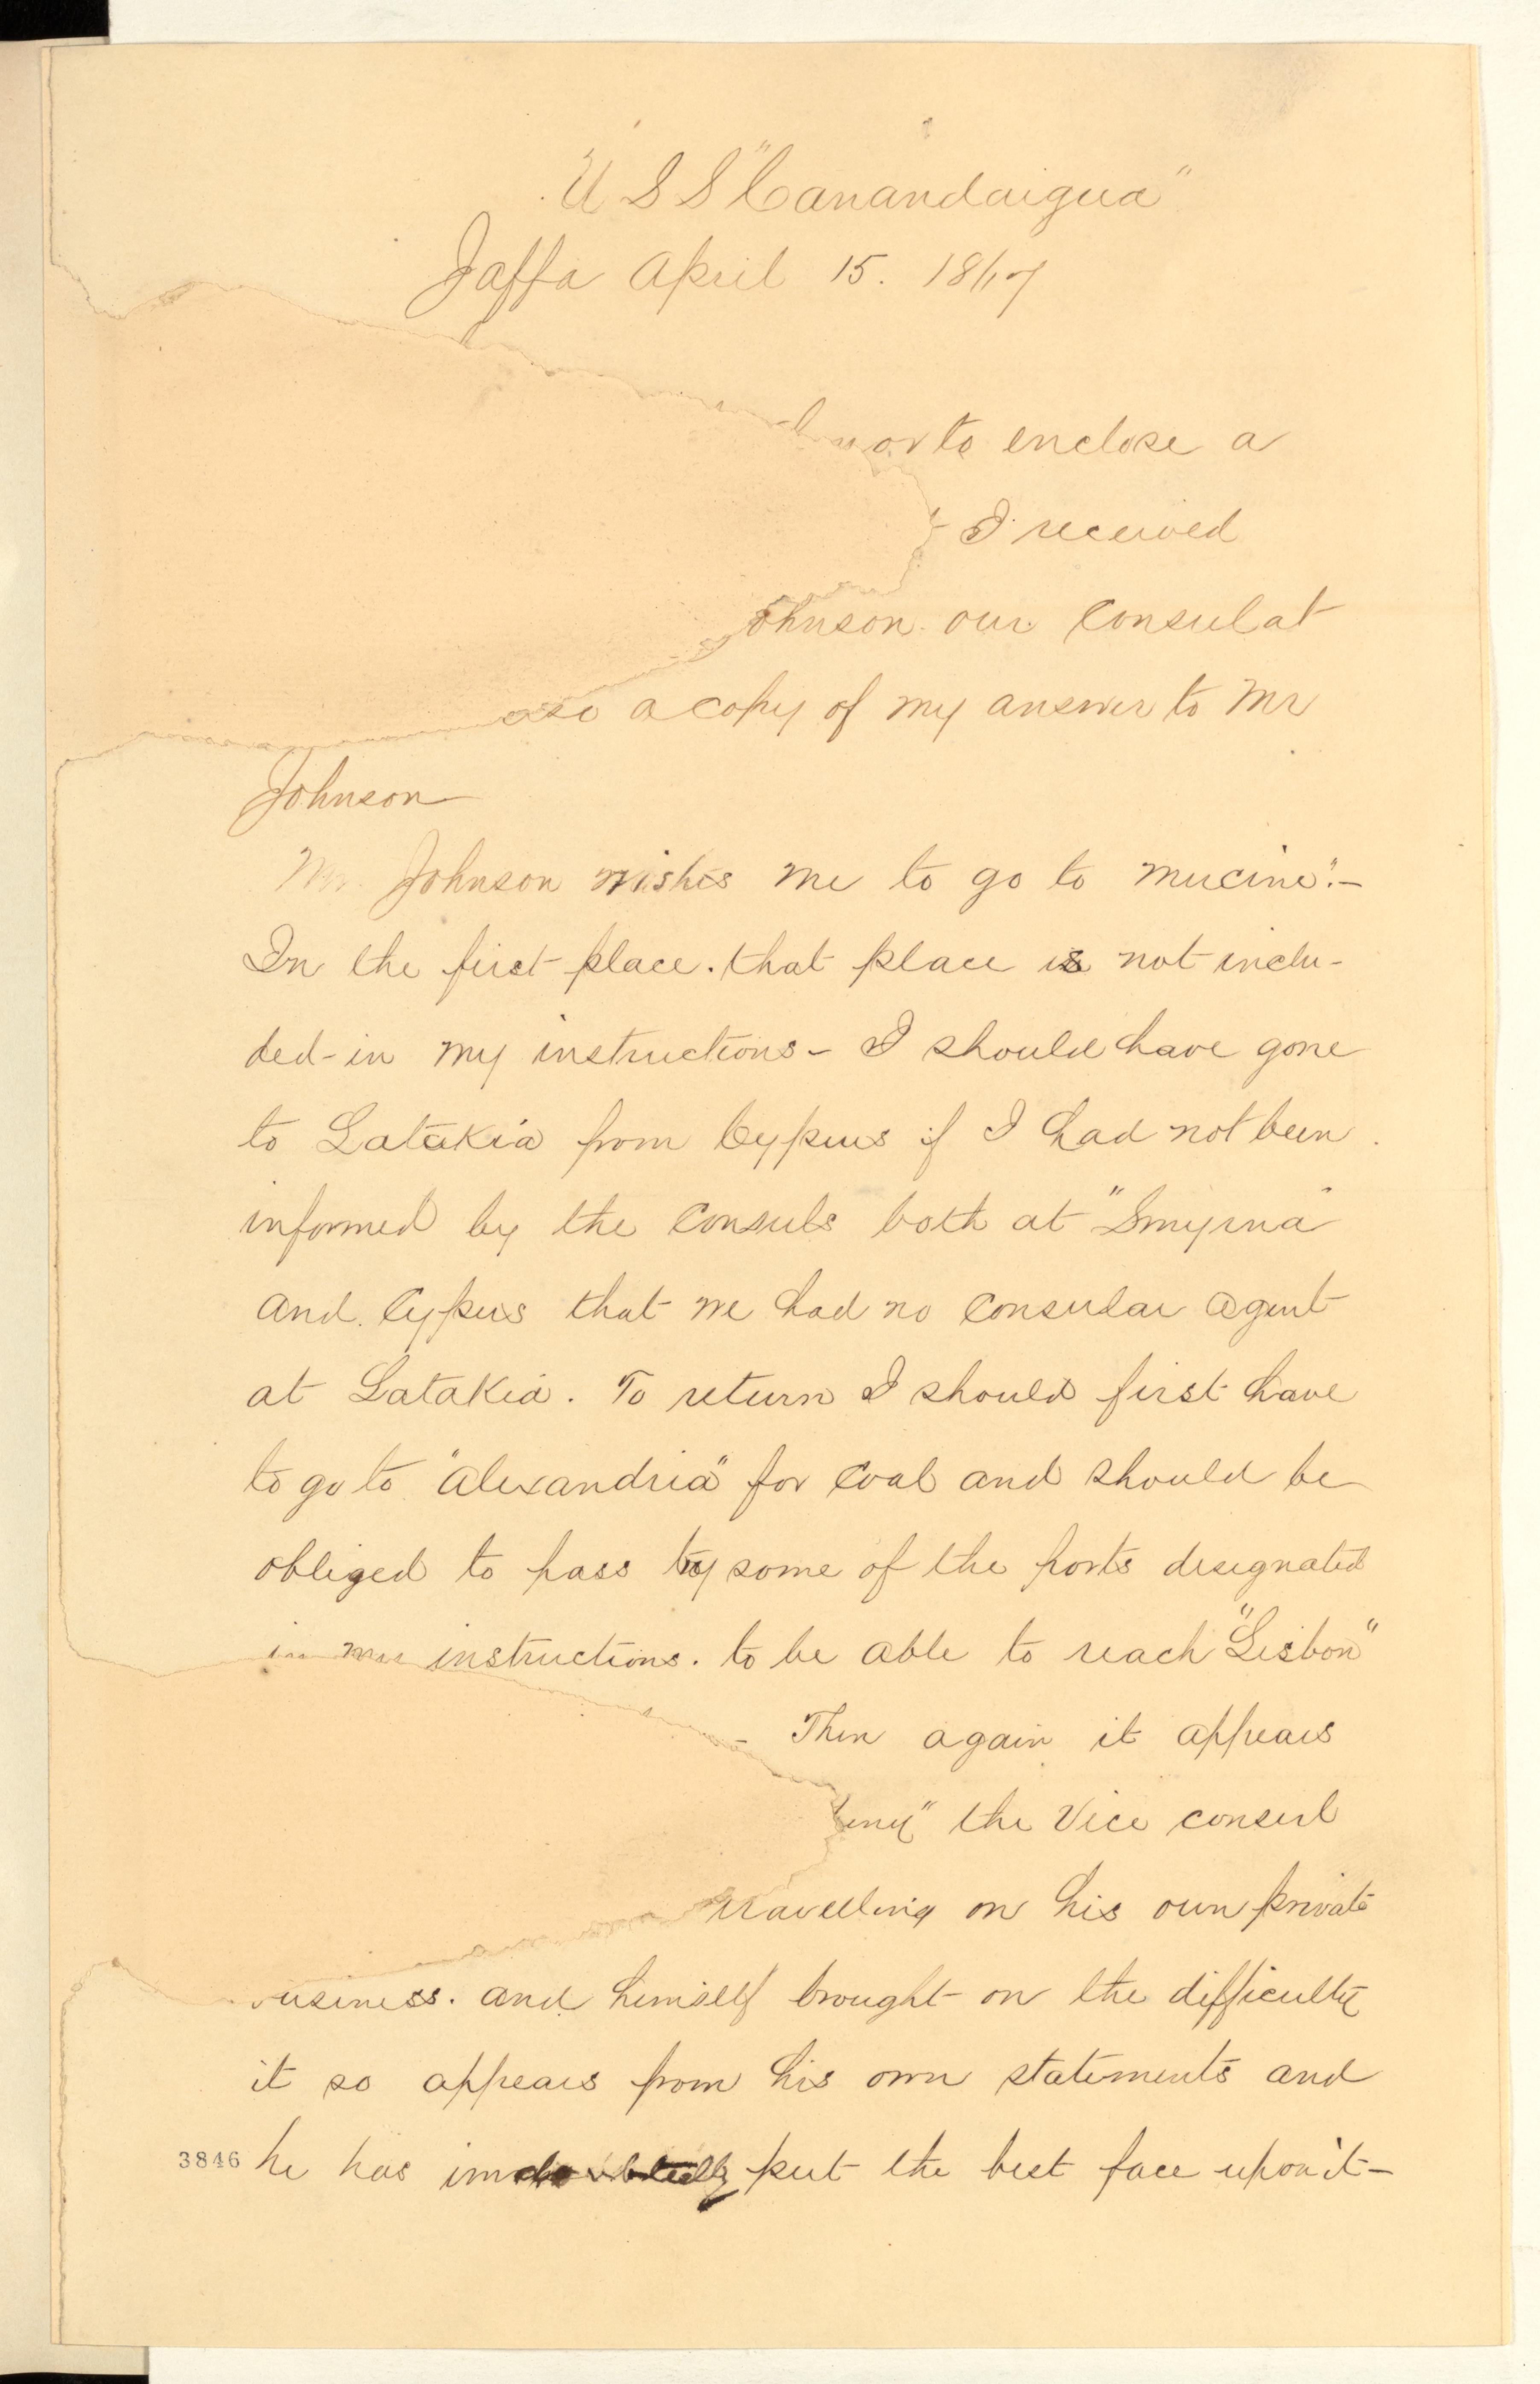 U S S "Canandaigua"
Jaffa April 15. 1867
nor to enclose a
I received
ohnson our Consul at
also a copy of my answer to Mr
Johnson
Mr Johnson wishes me to go to Mucine".-
In the first place. that place is not inclu-
ded in my instructions - I should have gone
to Latakia from Cyprus if I had not been
informed by the Consuls both at "Smyrna"
and Cyprus that we had no Consular Agent
at Latakia. To return I should first have
to go to "Alexandria" for Coal and should be
obliged to pass by some of the ports designated
in my instructions. to be able to reach "Lisbon"
- Then again it appears
the Vice consul
travelling on his own private
usiness. and himself brought on the difficulty
it so appears from his own statements and
3846 he has undoubtedly put the best face upon it-